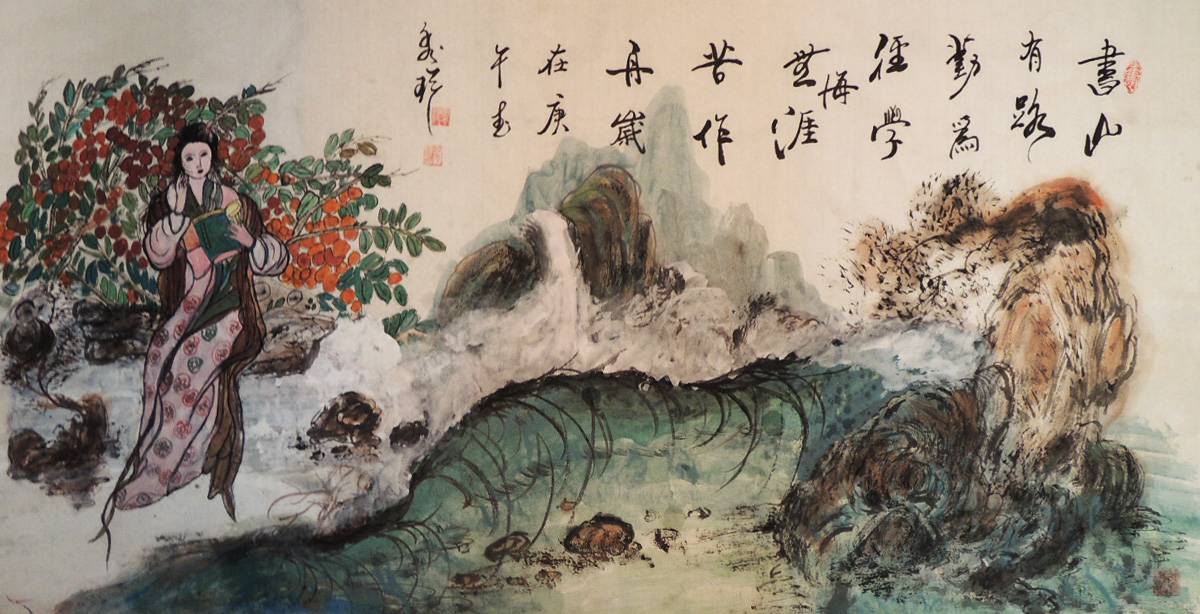 書山
有路
勤爲
徑學
海
無涯
苦作
舟歲
在庚
午春